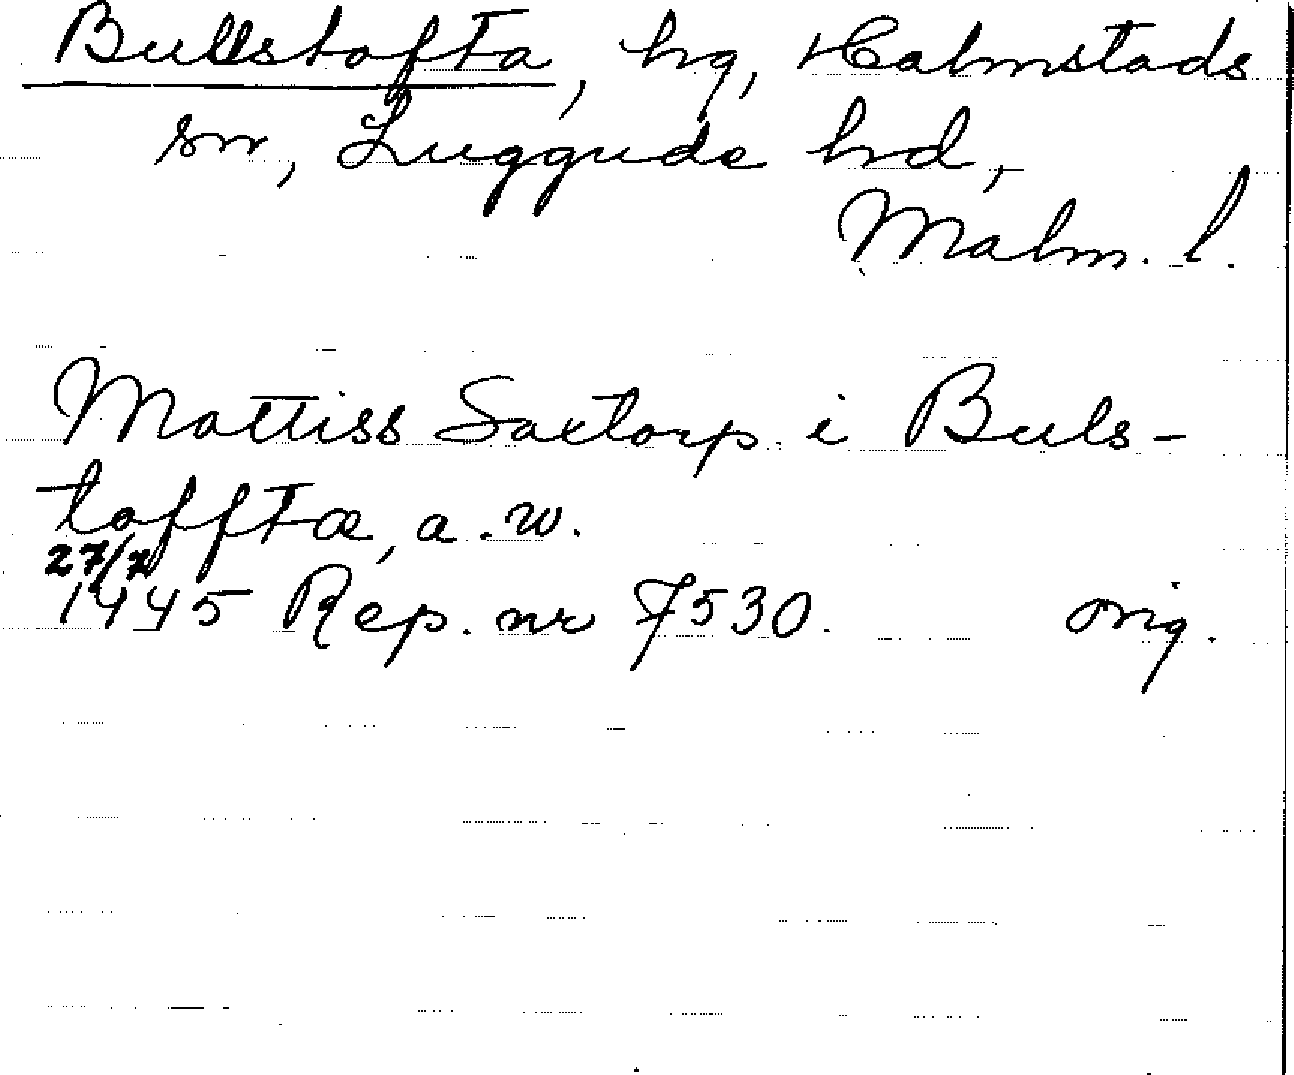 Bullstofta, hg, Halmstads
sn, Luggude hd,
Malm. l.
Mattiss Saxtorp i Buls-
tofftæ, a.w.
27/7
1445 Rep. nr 7530. orig.